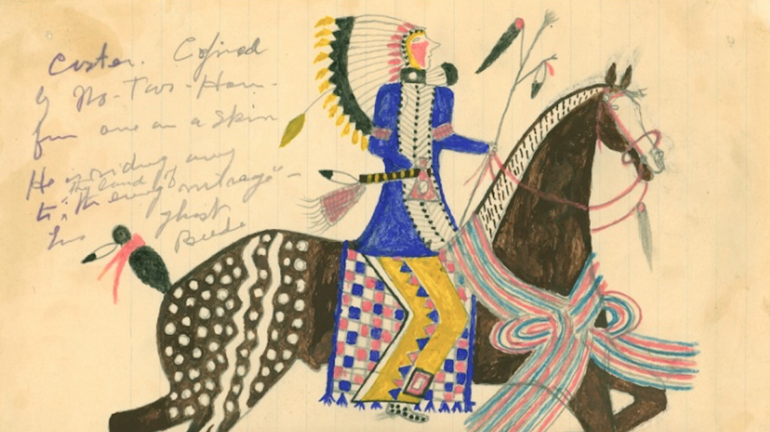 Custer. Copied
by No-Two-Horn.
from one on a Skin
He is riding away
to "the land of
the mirage" -
his ghost